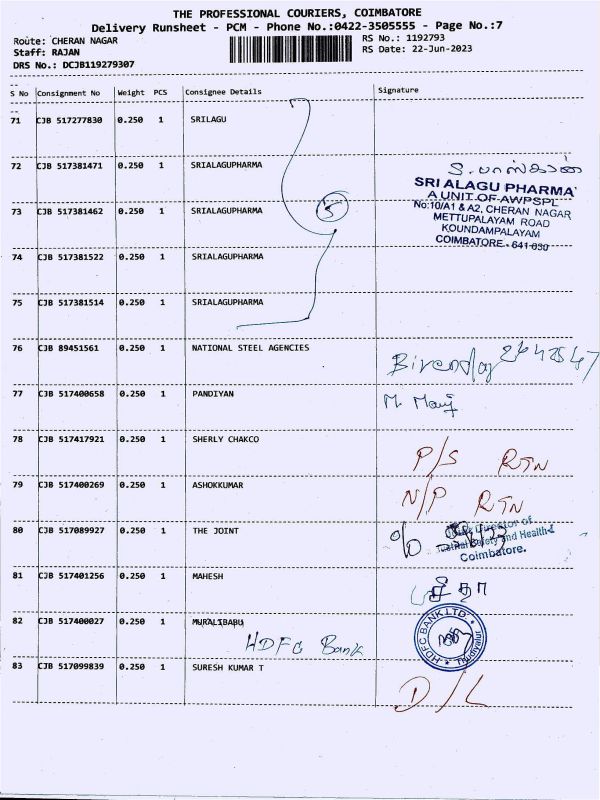 THE PROFESSIONAL COURIERS, COIMBATORE
Delivery Runsheet - PCM - Phone No.:0422-3505555 - Page No.:7
Route: CHERAN NAGAR
RS No.: 1192793
Staff: RAJAN
RS Date: 22-Jun-2023
DRS No.: DCJB119279307
S No Consignment No Weight PCS Consignee Details Signature
71 CJB 517277830 0.250 1 SRILAGU
72 CJB 517381471 0.250 1 SRIALAGUPHARMA
S. பாஸ்கரன்
SRI ALAGU PHARMA
A UNIT OF AWPSPL
73 CJB 517381462 0.250 1 SRIALAGUPHARMA
5
No:10/A1 & A2, CHERAN NAGAR
METTUPALAYAM ROAD
KOUNDAMPALAYAM
COIMBATORE - 641 030
74 CJB 517381522 0.250 1 SRIALAGUPHARMA
75 CJB 517381514 0.250 1 SRIALAGUPHARMA
76 CJB 89451561 0.250 1 NATIONAL STEEL AGENCIES
77 CJB 517400658 0.250 1 PANDIYAN
78 CJB 517417921 0.250 1 SHERLY CHAKCO
P/S RTN
79 CJB 517400269 0.250 1 ASHOKKUMAR
N/P RTN
80 CJB 517089927 0.250 1 THE JOINT
Director of
Safety and Health-I
Coimbatore.
81 CJB 517401256 0.250 1 MAHESH
82 CJB 517400027 0.250 1 MURALIBABU
HDFC Bank
HDFC BANK LTD. Thudiyalur
83 CJB 517099839 0.250 1 SURESH KUMAR T
D/L